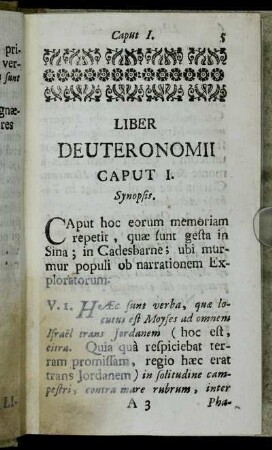 Caput I. 5
pri-
ver-
sunt
gnæ-
res
LIBER
DEUTERONOMII
CAPUT I.
Synopsis.
CAput hoc eorum memoriam
repetit, quæ sunt gesta in
Sina; in Cadesbarne; ubi mur-
mur populi ob narrationem Ex-
ploratorum.
V. 1. HÆc sunt verba, quæ lo-
cutus est Moyses ad omnem
Israël trans Jordanem (hoc est,
citra. Quia quà respiciebat ter-
ram promissam, regio hæc erat
trans Jordanem) in solitudine cam-
pestri, contra mare rubrum, inter
LI-
A 3 Pha-